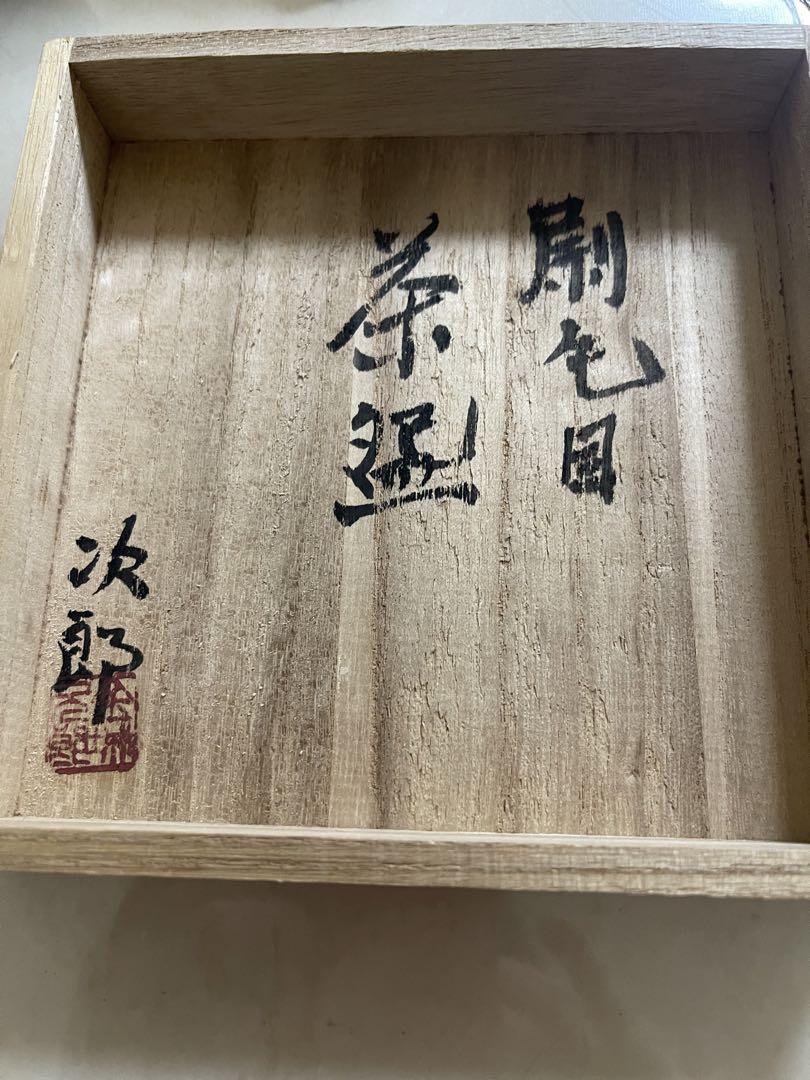 刷毛目
茶盌
次郎